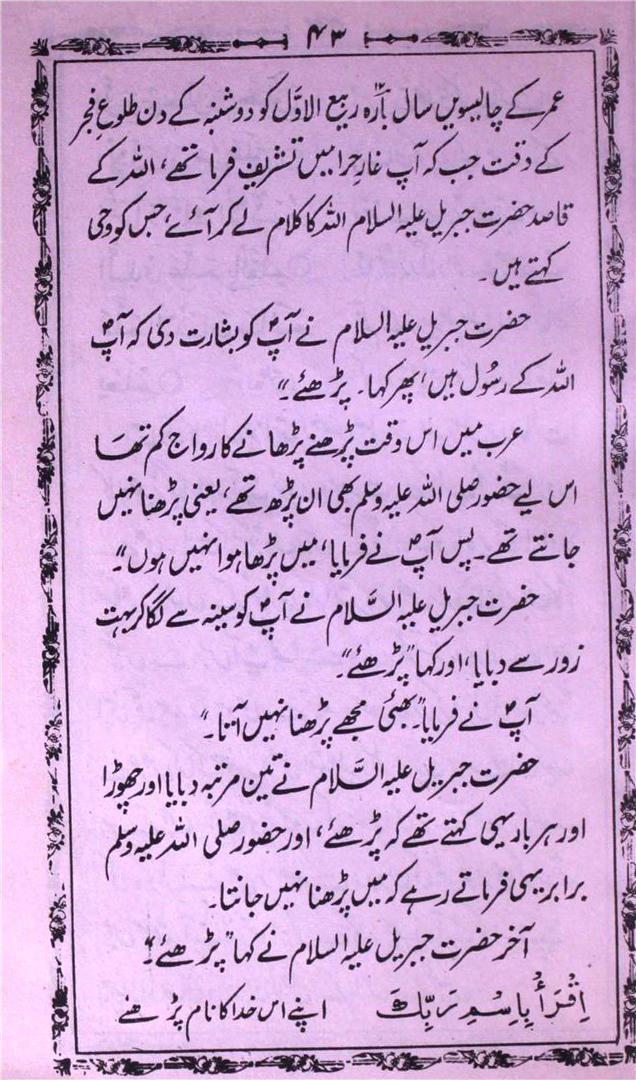 ۴۳
عمر کے چالیسویں سال بارہ ۱۲ ربیع الاوّل کو دوشنبہ کے دن طلوع فجر
کے وقت جب کہ آپ غارِ حرا میں تشریف فرما تھے، اللہ کے
قاصد حضرت جبریل علیہ السلام اللہ کا کلام لے کر آئے، جس کو وحی
کہتے ہیں۔
حضرت جبریل علیہ السلام نے آپؐ کو بشارت دی کہ آپؐ
اللہ کے رسُول ہیں، پھر کہا۔ پڑھئے۔"
عرب میں اس وقت پڑھنے پڑھانے کا رواج کم تھا
اس لیے حضور صلی اللہ علیہ وسلم بھی ان پڑھ تھے، یعنی پڑھنا نہیں
جانتے تھے۔ پس آپؐ نے فرمایا، میں پڑھا ہوا نہیں ہوں"۔
حضرت جبریل علیہ السَّلام نے آپؐ کو سینہ سے لگا کر بہت
زور سے دبایا، اور کہا "پڑھئے"۔
آپؐ نے فرمایا۔ "بھئی مجھے پڑھنا نہیں آتا۔"
حضرت جبریل علیہ السَّلام نے تین مرتبہ دبایا اور چھوڑا
اور ہر بار یہی کہتے تھے کہ پڑھئے، اور حضور صلی اللہ علیہ وسلم
برابر یہی فرماتے رہے کہ میں پڑھنا نہیں جانتا۔
آخر حضرت جبریل علیہ السلام نے کہا "پڑھئے۔"
اِقْرَأْ بِاسْمِ رَبِّكَ اپنے اس خدا کا نام پڑھئے